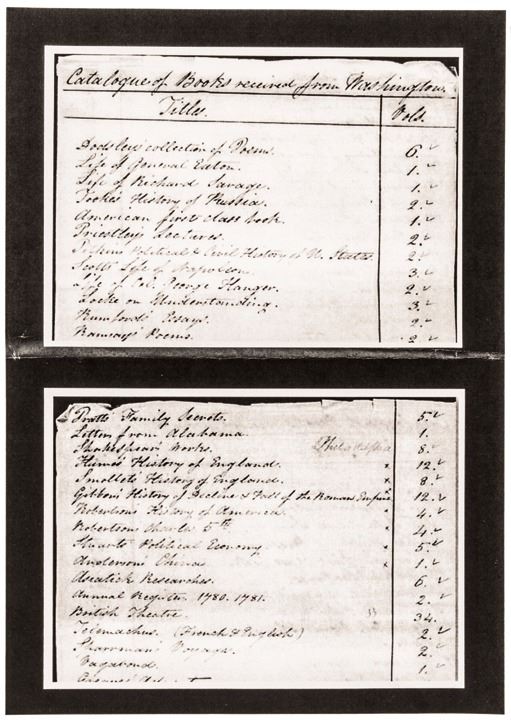 Catalogue of Books received from Washington.
Titles. Vols.
Dodsley's collection of Poems. 6.
Life of General Eaton. 1.
Life of Richard Savage. 1.
Tooke's History of Russia. 2.
American first class book. 1.
Priestley's Lectures. 2.
Pitkins Political & Civil History of U. States. 2.
Scott's Life of Napoleon. 3.
Life of Col. George Hanger. 2.
Locke on Understanding. 3.
Rumford's Essays. 2.
Ramsay's Poems. 2
Pratts' Family Secrets. 5.
Letters from Alabama 1.
Shakespear's Works. Philadelphia 8.
Hume's History of England. x 12.
Smollets History of England. x 8.
Gibbon's History of Decline & Fall of the Roman Empire x 12.
Robertsons History of America. x 4.
Robertsons Charles 5th. x 4.
Stuarts Political Economy x 5.
Andersons China x 1.
Asiatick Researches. 6.
Annual Register 1780. 1781. 2.
British Theatre 33 34.
Telemachus. (French & English) 2.
Voyage. 2.
Vagabond. 1.